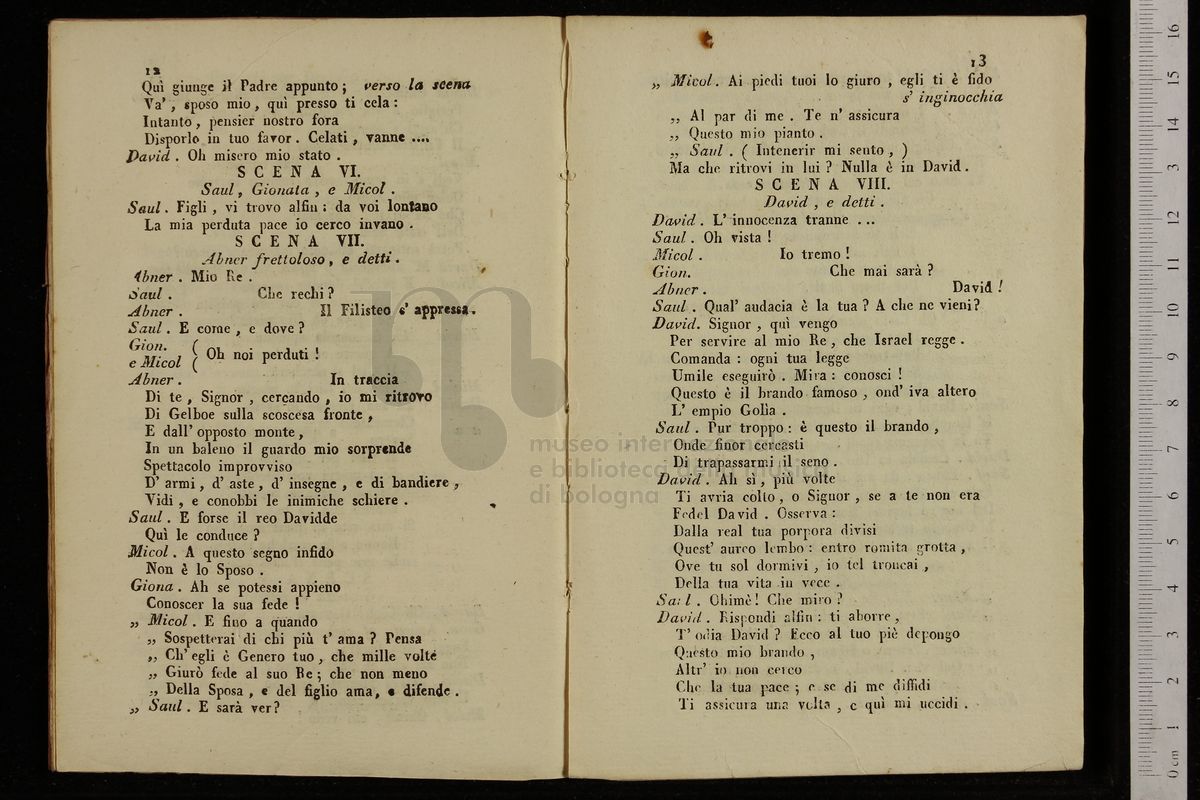 12
Quì giunge il Padre appunto; verso la scena
Va', sposo mio, quì presso ti cela:
Intanto, pensier nostro fora
Disporlo in tuo favor. Celati, vanne ....
David. Oh misero mio stato.
SCENA VI.
Saul, Gionata, e Micol.
Saul. Figli, vi trovo alfin: da voi lontano
La mia perduta pace io cerco invano.
SCENA VII.
Abner frettoloso, e detti.
Abner. Mio Re.
Saul. Che rechi?
Abner. Il Filisteo s' appressa.
Saul. E come, e dove?
Gion.
e Micol ( Oh noi perduti!
Abner. In traccia
Di te, Signor, cercando, io mi ritrovo
Di Gelboe sulla scoscesa fronte,
E dall' opposto monte,
In un baleno il guardo mio sorprende
Spettacolo improvviso
D' armi, d' aste, d' insegne, e di bandiere,
Vidi, e conobbi le inimiche schiere.
Saul. E forse il reo Davidde
Quì le conduce?
Micol. A questo segno infido
Non è lo Sposo.
Giona. Ah se potessi appieno
Conoscer la sua fede!
„ Micol. E fino a quando
„ Sospetterai di chi più t' ama? Pensa
„ Ch' egli è Genero tuo, che mille volte
„ Giurò fede al suo Re; che non meno
„ Della Sposa, e del figlio ama, e difende.
„ Saul. E sarà ver?
13
„ Micol. Ai piedi tuoi lo giuro, egli ti è fido
s' inginocchia
„ Al par di me. Te n' assicura
„ Questo mio pianto.
„ Saul. ( Intenerir mi sento, )
Ma che ritrovi in lui? Nulla è in David.
SCENA VIII.
David, e detti.
David. L' innocenza tranne ...
Saul. Oh vista!
Micol. Io tremo!
Gion. Che mai sarà?
Abner. David!
Saul. Qual' audacia è la tua? A che ne vieni?
David. Signor, quì vengo
Per servire al mio Re, che Israel regge.
Comanda: ogni tua legge
Umile eseguirò. Mira: conosci!
Questo è il brando famoso, ond' iva altero
L' empio Golìa.
Saul. Pur troppo: è questo il brando,
Onde finor cercasti
Di trapassarmi il seno.
David. Ah sì, più volte
Ti avria colto, o Signor, se a te non era
Fedel David. Osserva:
Dalla real tua porpora divisi
Quest' aureo lembo: entro romita grotta,
Ove tu sol dormivi, io tel troncai,
Della tua vita in vece.
Saul. Ohimè! Che miro?
David. Rispondi alfin: ti aborre,
T' odia David? Ecco al tuo piè depongo
Questo mio brando,
Altr' io non cerco
Che la tua pace; e se di me diffidi
Ti assicura una volta, e quì mi uccidi.
museo internazionale
e biblioteca della musica
di bologna
0 cm 1 2 3 4 5 6 7 8 9 10 11 12 13 14 15 16